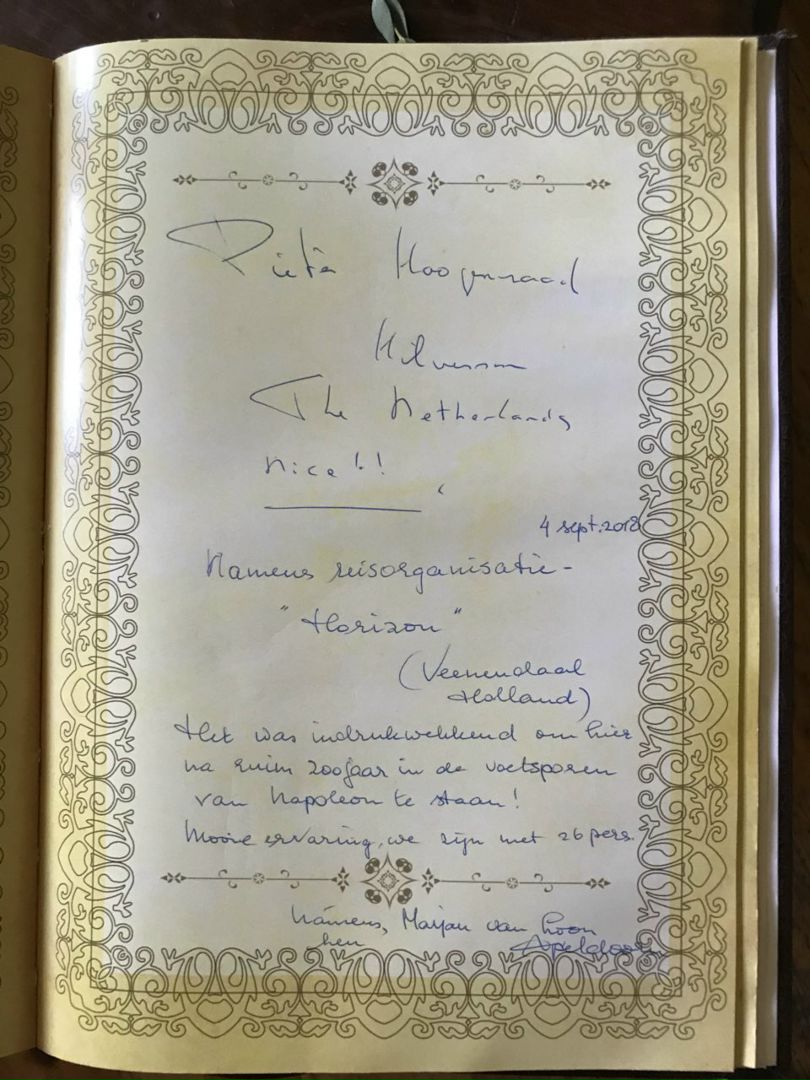 Pieter Hoogenraad
Hilversum
The Netherlands
nice!!
4 sept. 2018
Namens reisorganisatie -
"Horizon"
(Veenendaal
Holland)
Het was indrukwekkend om hier
na ruim 200 jaar in de voetsporen
van Napoleon te staan!
Mooie ervaring, we zijn met 26 pers.
Namens, Marjan van
hen Apeldoorn